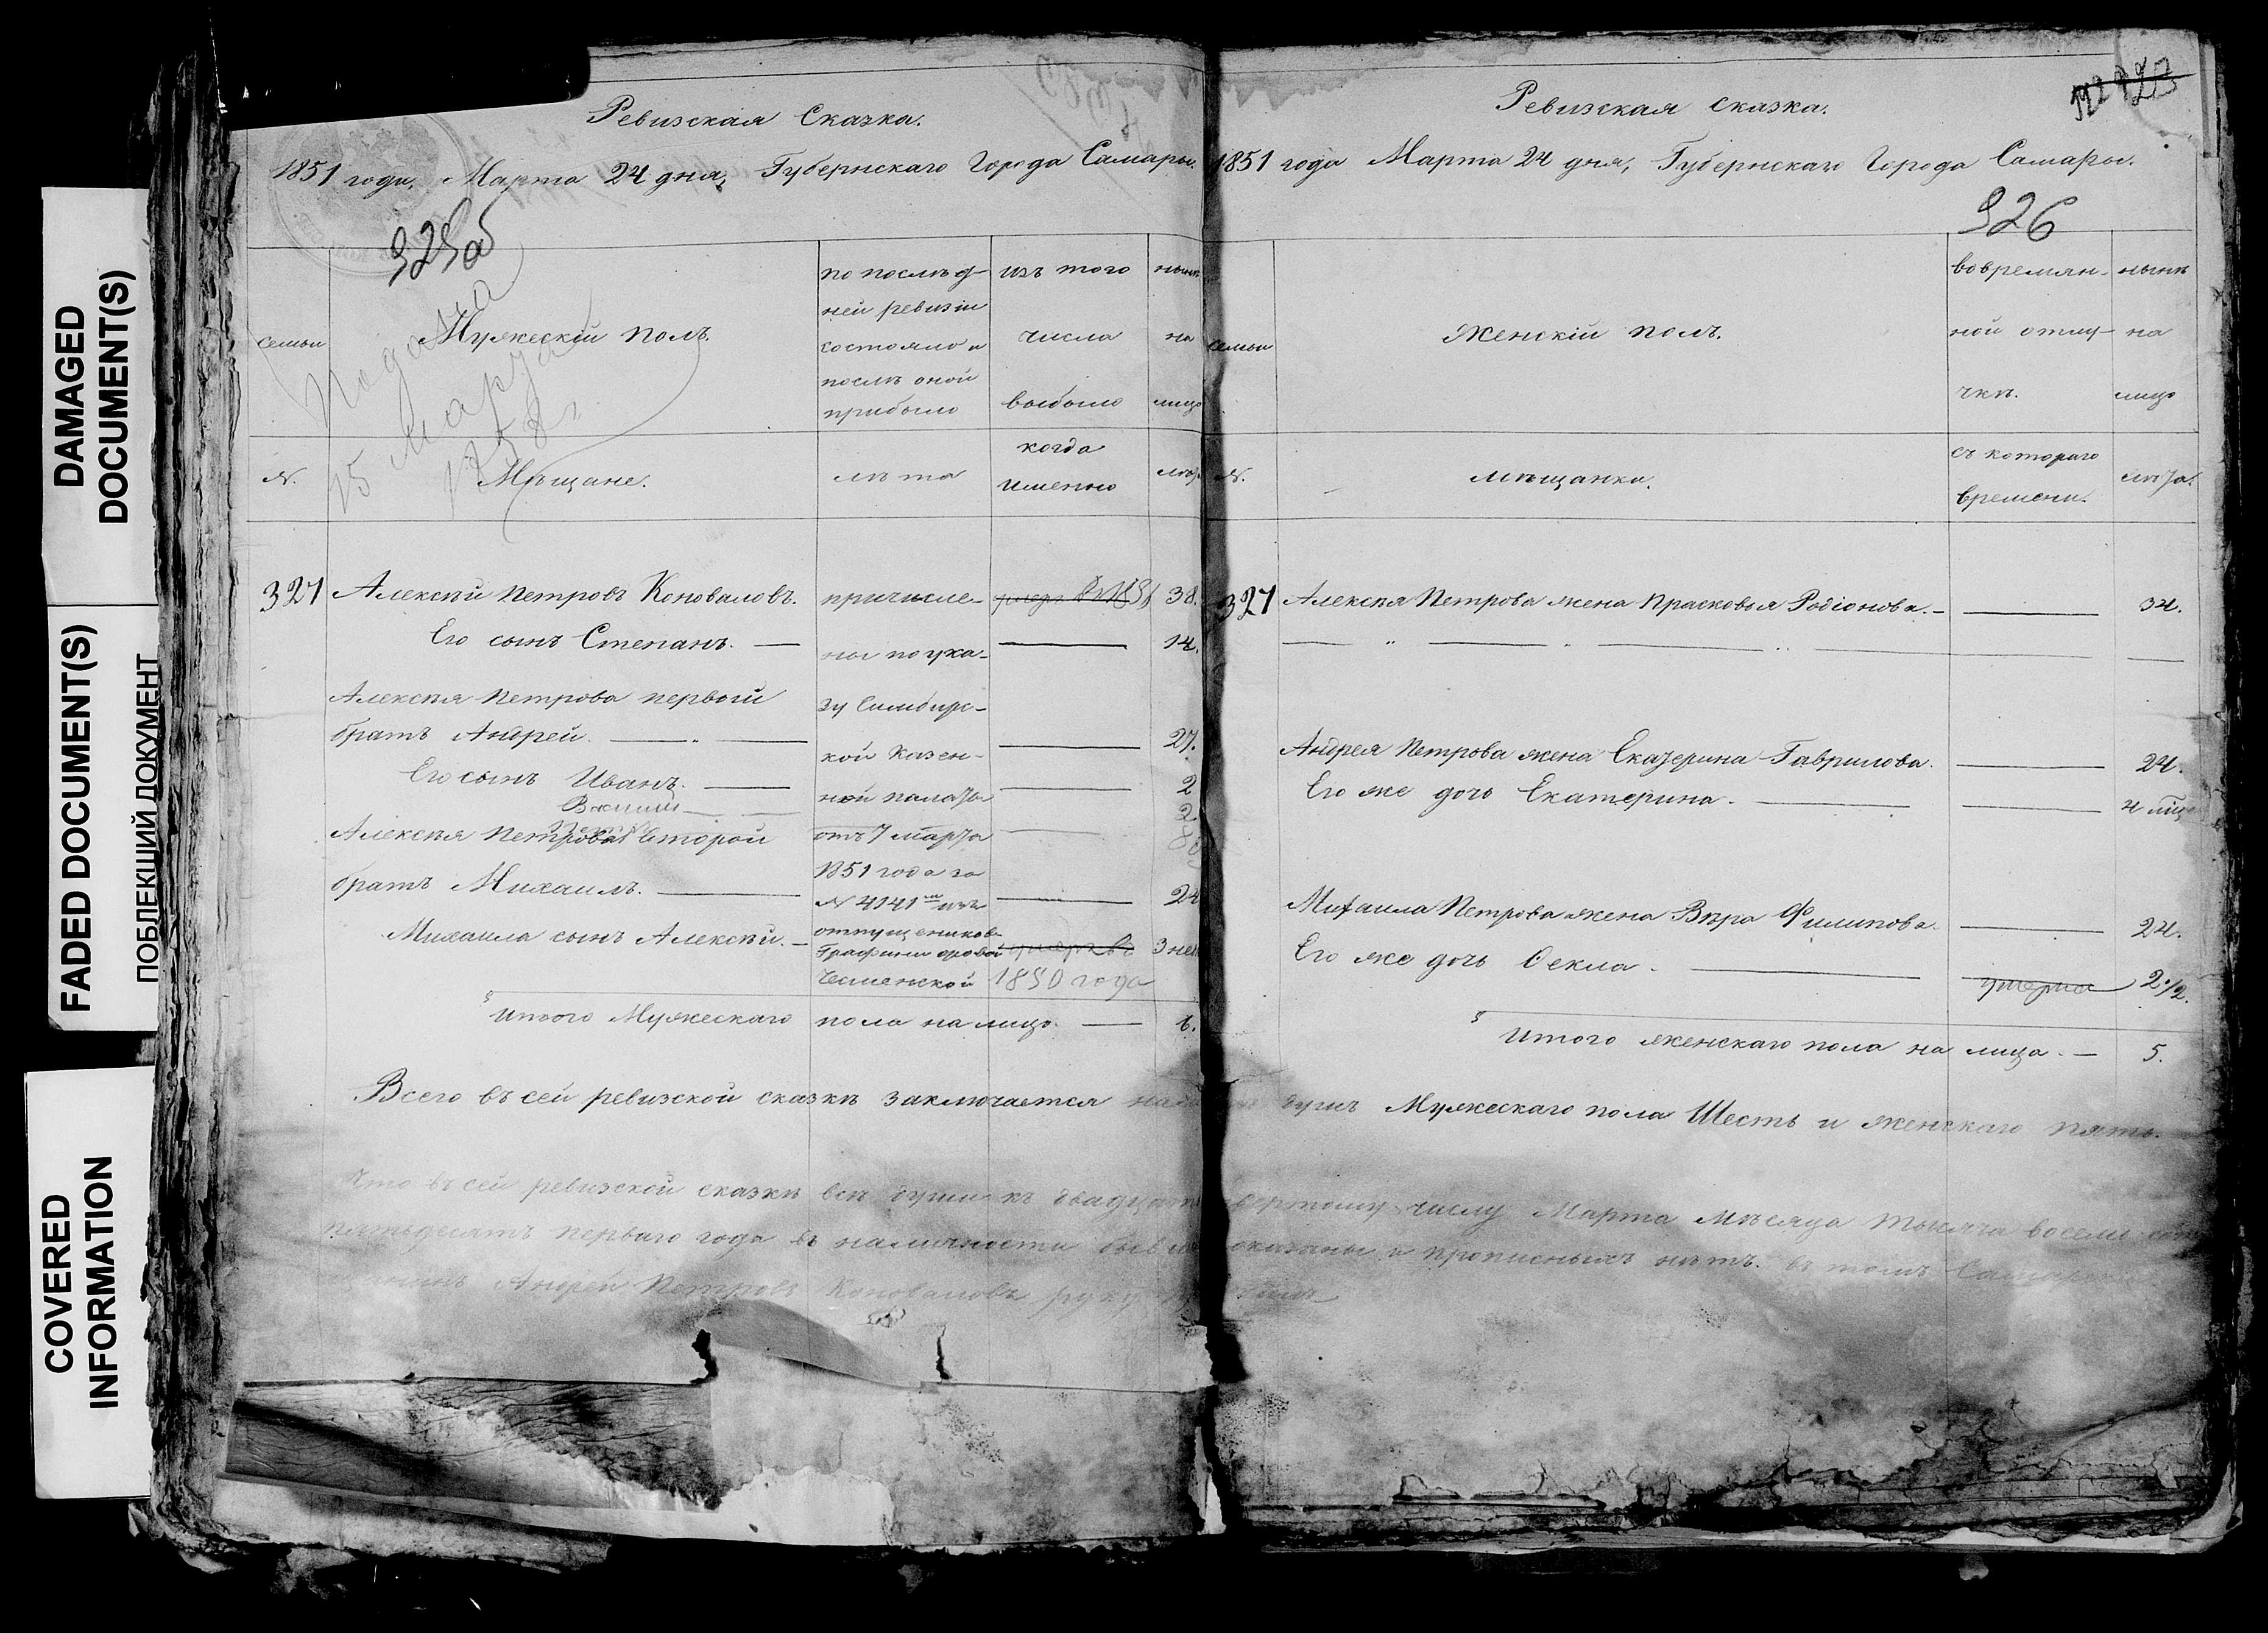 DAMAGED
DOCUMENT(S)
FADED DOCUMENT(S)
ПОБЛЕКШИЙ ДОКУМЕНТ
COVERED
INFORMATION
Ревизская Сказка.
1851 года, Марта 24 дня, Губернскаго Города Самары.
925об
Подана
15 Марта
семьи
Мужескій полъ.
по послѣд-
ней ревизіи
состояло и
послѣ оной
прибыло
изъ того
числа
выбыло
нынѣ
на
лицо
N.
Мѣщане.
лѣта
когда
именно
лѣта
327 Алексѣй Петровъ Коноваловъ. причисле- 38.
Его сынъ Степанъ. — ны по ука- 14.
Алексѣя Петрова первый зу Симбирс-
братъ Андрей. кой Казен- 27.
Его сынъ Иванъ. — ной палаты 2
Василій 2
Алексѣя Петрова второй отъ 7 марта
братъ Михаилъ. 1851 года за 24
N 4141 изъ
Михаила сынъ Алексѣй. — отпущениковъ 3 нед
Графини Орловой умеръ въ
Чесменской 1850 года
Итого Мужескаго пола на лицо. — 6.
Всего въ сей ревизской сказкѣ заключается
Что въ сей ревизской сказкѣ всѣ души къ двадцать
пятьдесятъ перваго года въ наличности
Андрей Петровъ Коноваловъ руку
Ревизская Сказка.
1851 года Марта 24 дня, Губернскаго Города Самары.
926
семьи
Женскій полъ.
во времян-
ной отлу-
чкѣ.
нынѣ
на
лицо
N.
Мѣщанки.
съ котораго
времени.
лѣта.
327 Алексѣя Петрова жена Прасковья Родіонова. — 34.
Андрея Петрова жена Екатерина Гаврилова. 24.
Его же дочь Екатерина. 4 мѣц
Михаила Петрова жена Вѣра Филипова. 24.
Его же дочь Ѳекла. умерла 2 1/2.
Итого женскаго пола на лицо. — 5.
душъ Мужескаго пола Шесть и женскаго пять.
вертому числу Марта мѣсяца тысяча восемь сотъ
показаны и прописныхъ нѣтъ. въ томъ